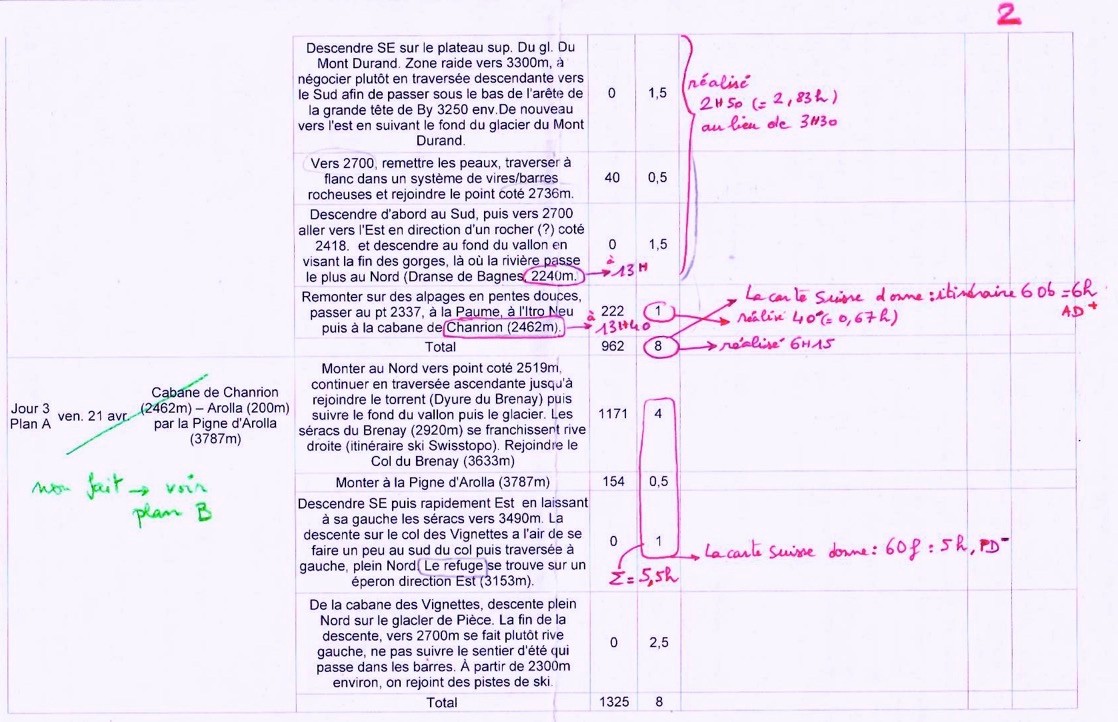 2
Descendre SE sur le plateau sup. Du gl. Du
Mont Durand. Zone raide vers 3300m, à
négocier plutôt en traversée descendante vers
le Sud afin de passer sous le bas de l'arête de
la grande tête de By 3250 env.De nouveau
vers l'est en suivant le fond du glacier du Mont
Durand.
0 1,5
réalisé
2H50 (= 2,83h)
au lieu de 3H30
Vers 2700, remettre les peaux, traverser à
flanc dans un système de vires/barres
rocheuses et rejoindre le point coté 2736m.
40 0,5
Descendre d'abord au Sud, puis vers 2700
aller vers l'Est en direction d'un rocher (?) coté
2418. et descendre au fond du vallon en
visant la fin des gorges, là où la rivière passe
le plus au Nord (Dranse de Bagnes 2240m.
0 1,5
à
→ 13H
Remonter sur des alpages en pentes douces,
passer au pt 2337, à la Paume, à l'Itro Neu
puis à la cabane de Chanrion (2462m).
222 1
à
→ 13H40
La carte Suisse donne : itinéraire 60b = 6h
AD+
réalisé 40' (= 0,67h)
Total 962 8
→ réalisé 6H15
Jour 3
Plan A
ven. 21 avr.
Cabane de Chanrion
(2462m) – Arolla (200m)
par la Pigne d'Arolla
(3787m)
non fait → voir
plan B
Monter au Nord vers point coté 2519m,
continuer en traversée ascendante jusqu'à
rejoindre le torrent (Dyure du Brenay) puis
suivre le fond du vallon puis le glacier. Les
séracs du Brenay (2920m) se franchissent rive
droite (itinéraire ski Swisstopo). Rejoindre le
Col du Brenay (3633m)
1171 4
Monter à la Pigne d'Arolla (3787m) 154 0,5
Descendre SE puis rapidement Est en laissant
à sa gauche les séracs vers 3490m. La
descente sur le col des Vignettes a l'air de se
faire un peu au sud du col puis traversée à
gauche, plein Nord. Le refuge se trouve sur un
éperon direction Est (3153m).
0 1
Σ = 5,5h
La carte Suisse donne : 60f : 5h, PD-
De la cabane des Vignettes, descente plein
Nord sur le glacier de Pièce. La fin de la
descente, vers 2700m se fait plutôt rive
gauche, ne pas suivre le sentier d'été qui
passe dans les barres. À partir de 2300m
environ, on rejoint des pistes de ski.
0 2,5
Total 1325 8